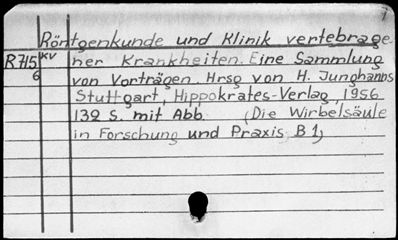 Röntgenkunde und Klinik vertebrage
R715 KV ner Krankheiten. Eine Sammlung
6 von Vorträgen. Hrsg von H. Junghanns
Stuttgart, Hippokrates-Verlag, 1956
132 S. mit Abb. (Die Wirbelsäule
in Forschung und Praxis, B 1)